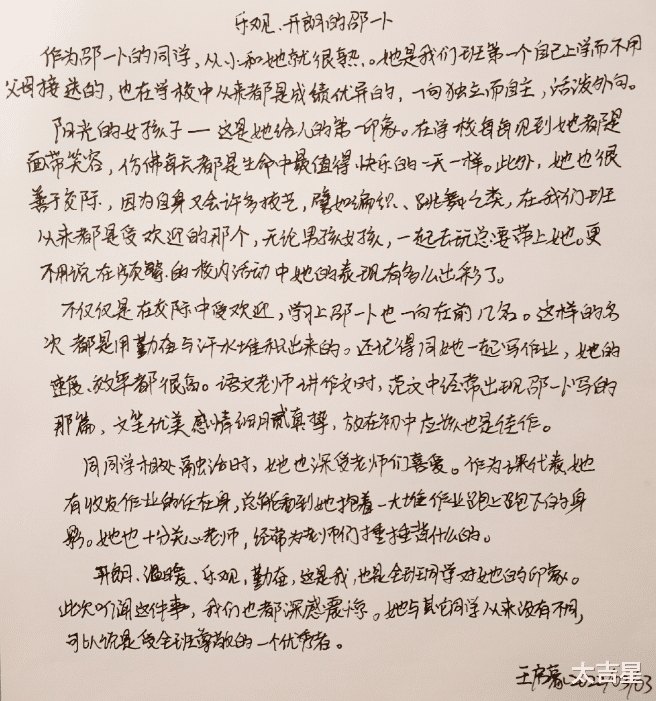 乐观、开朗的邵一卜
作为邵一卜的同学，从小和她就很熟。她是我们班第一个自己上学而不用
父母接送的，也在学校中从来都是成绩优异的，一向独立而自主，活泼外向。
阳光的女孩子——这是她给人的第一印象。在学校每每见到她都是
面带笑容，仿佛每天都是生命中最值得快乐的一天一样。此外，她也很
善于交际，因为自身又会许多技艺，譬如编织、跳舞之类，在我们班
从来都是受欢迎的那个，无论男孩女孩，一起去玩总要带上她。更
不用说在频繁的校内活动中她的表现有多么出彩了。
不仅仅是在交际中受欢迎，学习上邵一卜也一向在前几名。这样的名
次都是用勤奋与汗水堆积出来的。还记得同她一起写作业，她的
速度、效率都很高。语文老师讲作文时，范文中经常出现邵一卜写的
那篇，文笔优美感情细腻真挚，放在初中应该也是佳作。
同同学相处融洽时，她也深受老师们喜爱。作为课代表，她
有收发作业的任在身，总能看到她抱着一大堆作业跑上跑下的身
影。她也十分关心老师，经常为老师们捶捶背什么的。
开朗、温暖、乐观，勤奋，这是我，也是全班同学对她的印象。
此次听闻这件事，我们也都深感震惊。她与其它同学从来没有不同，
可以说是受全班尊敬的一个优秀者。
太吉星